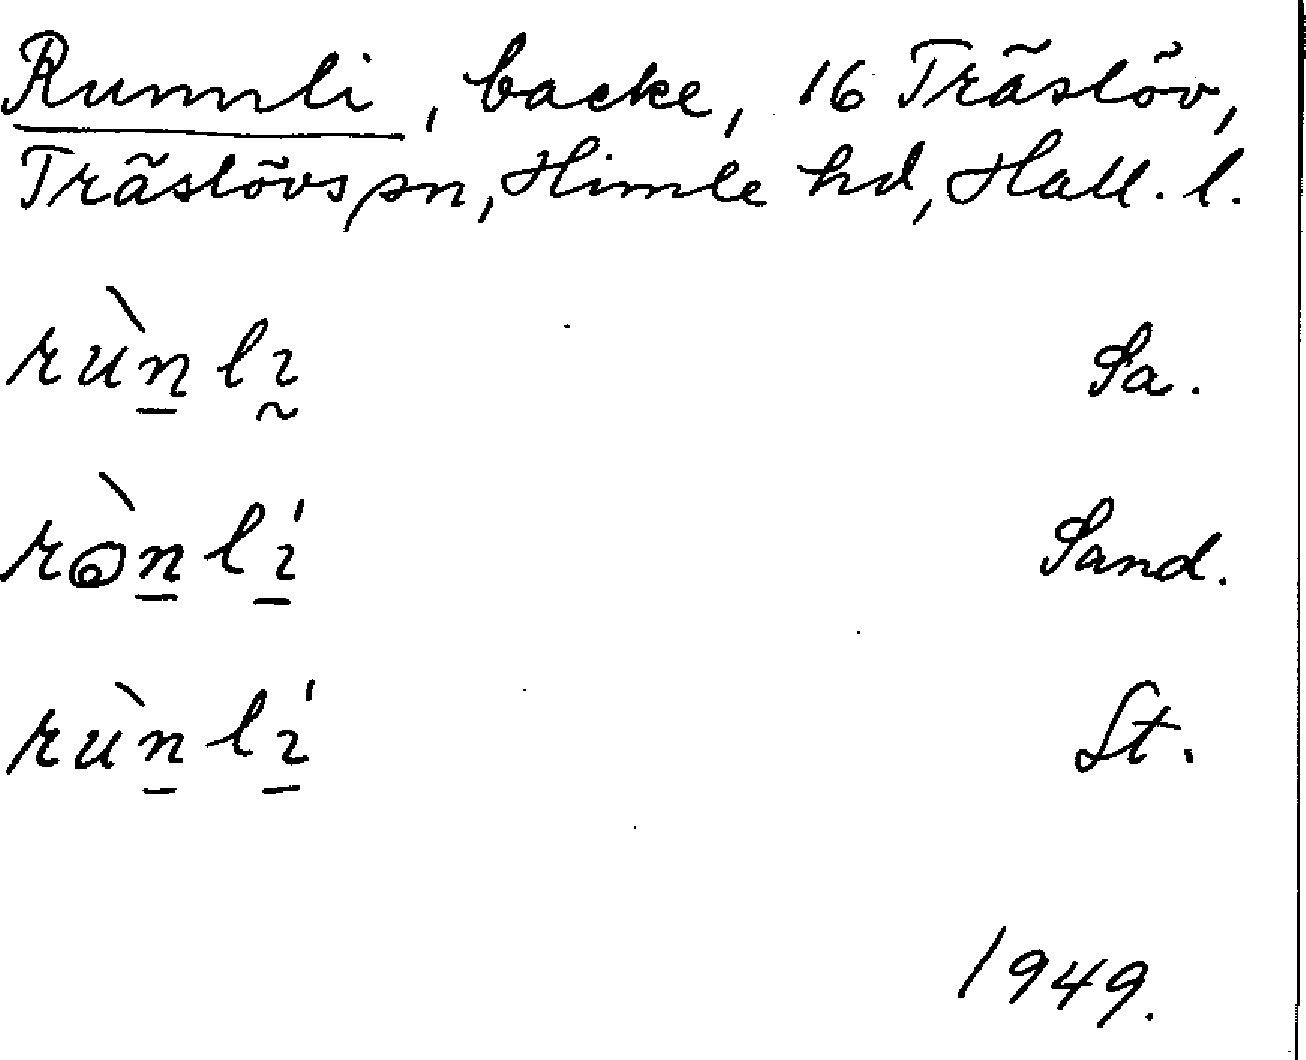 Runnli, backe, 16 Träslöv,
Träslövs sn, Himle hd, Hall. l.
rùn̲lı̰ Sa.
rꝺ̀n̲lı̲́ Sand.
rùn̲lı̲́ St.
1949.